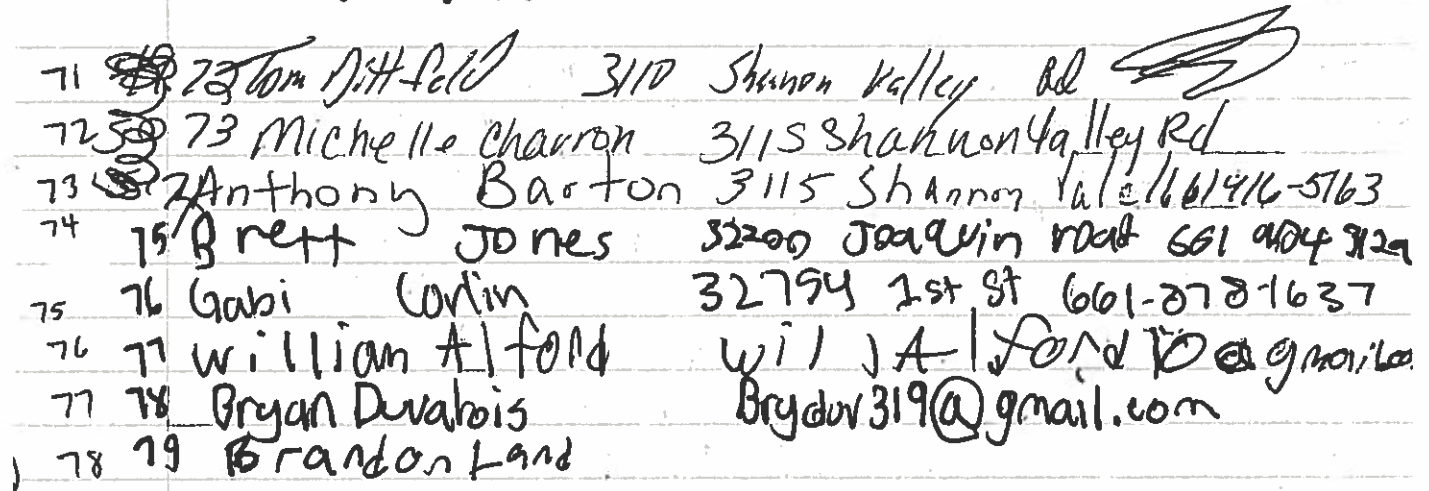 71 73 Tom Dittfeld 3110 Shannon Valley Rd
72 73 Michelle Charron 3115 Shannon Valley Rd
73 Anthony Barton 3115 Shannon 661 416-5163
74 75 Brett Jones 32200 Joaquin road 661
75 76 Gabi 32754 1st St 661-878-1637
76 77 Willian Alford
77 78 Bryan Duvalois Bryduv319@gmail.com
78 79 Brandon Land